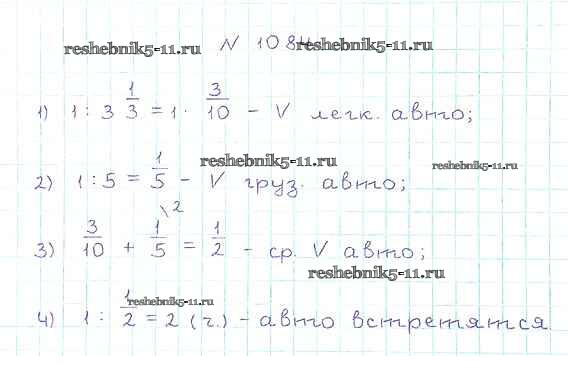 reshebnik5-11.ru N 1084 reshebnik5-11.ru
1) 1 : 3 1/3 = 1 · 3/10 - V легк. авто;
reshebnik5-11.ru
2) 1 : 5 = 1/5 - V груз. авто; reshebnik5-11.ru
3) 3/10 + 1/5 \2 = 1/2 - ср. V авто;
reshebnik5-11.ru
reshebnik5-11.ru
4) 1 : 1/2 = 2 (ч.) - авто встретятся